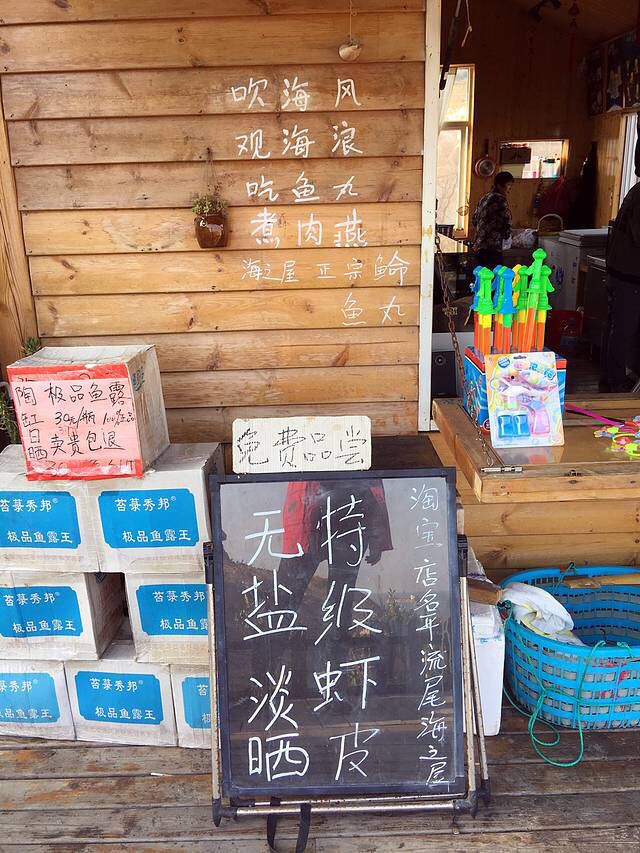 吹海风
观海浪
吃鱼丸
煮肉燕
海之屋 正宗
鱼丸
陶缸日晒
极品鱼露
30元/瓶
卖贵包退
免费品尝
淘宝店名平流尾海之屋
特级虾皮
无盐淡晒
苔菉秀邦®
极品鱼露王
苔菉秀邦®
极品鱼露王
苔菉秀邦®
极品鱼露王
苔菉秀邦®
极品鱼露王
苔菉秀邦®
极品鱼露王
苔菉秀邦®
极品鱼露王